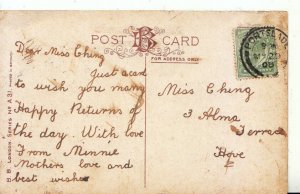 POST B CARD
FOR ADDRESS ONLY.
Dear Miss Ching
Just a card
to wish you many
Happy Returns of
the day. With love
From Minnie
Mothers love and
best wishes
Miss Ching
3 Alma
Terrace
Hove
B. B. LONDON. SERIES No A 31